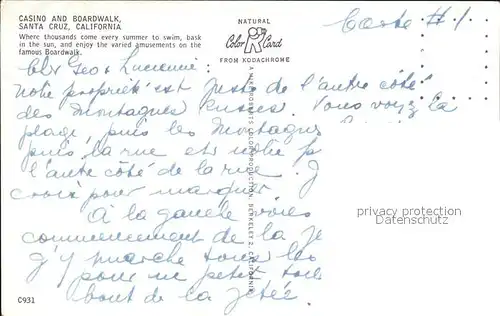 CASINO AND BOARDWALK,
SANTA CRUZ, CALIFORNIA
Where thousands come every summer to swim, bask
in the sun, and enjoy the varied amusements on the
famous Boardwalk.
NATURAL
Color Card
FROM KODACHROME
Carte #1
Geo Lucienne:
Notre propriété est juste de l'autre côté
des Montagnes Russes. Vous voyez la
plage, puis les Montagnes
puis la rue et notre p
l'autre côté de la rue. J
croix pour marquer
À la gauche voiès
commencement de la je
j'y marche tous les
pour un petit tour
bout de la jetée.
A MIKE ROBERTS COLOR PRODUCTION, BERKELEY 2, CALIFORNIA
privacy protection
Datenschutz
C931